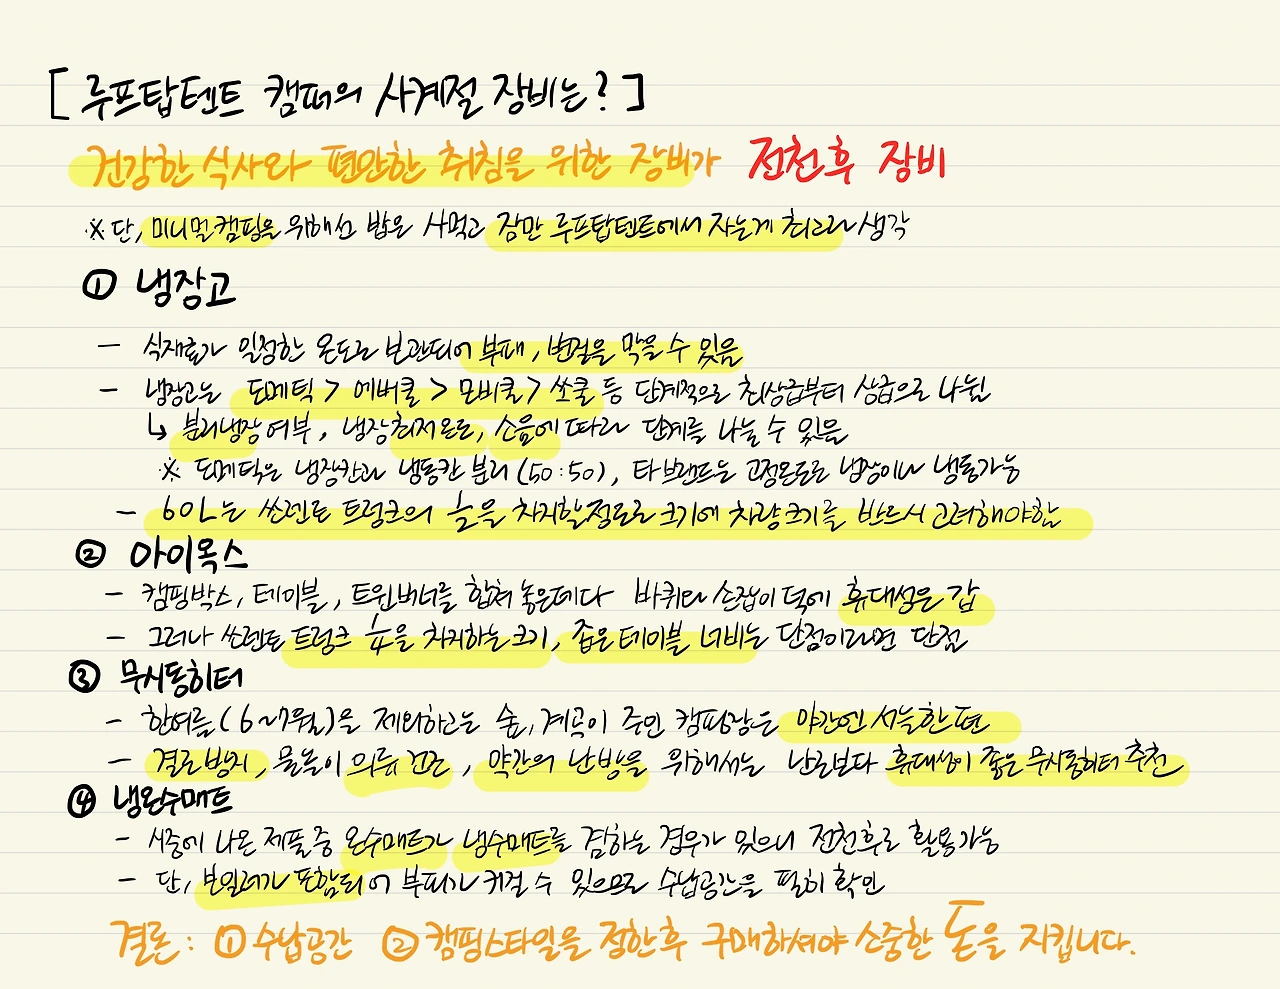 [ 루프탑텐트 캠퍼의 사계절 장비는? ]
건강한 식사와 편안한 취침을 위한 장비가 전천후 장비
※ 단, 미니멀캠핑을 위해선 밥은 사먹고 잠만 루프탑텐트에서 자는게 최고라 생각
① 냉장고
- 식재료가 일정한 온도로 보관되어 부패, 변질을 막을 수 있음
- 냉장고는 도메틱 > 에버쿨 > 모비쿨 > 쏘쿨 등 단계적으로 최상급부터 상급으로 나뉨
↳ 분리냉장여부, 냉장최저온도, 소음에 따라 단계를 나눌 수 있음
※ 도메틱은 냉장칸과 냉동칸 분리 (50:50), 타브랜드는 고정온도로 냉장이나 냉동가능
- 60L는 쏘렌토 트렁크의 차지할정도로 크기에 차량크기를 반드시 고려해야함
② 아이목스
- 캠핑박스, 테이블, 트윈버너를 합쳐 놓은데다 바퀴와 손잡이 덕에 휴대성은 갑
- 그러나 쏘렌토 트렁크 ¼을 차지하는 크기, 좁은 테이블 너비는 단점이라면 단점
③ 무시동히터
- 한여름(6~7월)을 제외하고는 숲, 계곡이 주인 캠핑장은 야간엔 서늘한편
- 결로방지, 물놀이 의류 건조, 약간의 난방을 위해서는 난로보다 휴대성이 좋은 무시동히터 추천
④ 냉온수매트
- 시중에 나온 제품중 온수매트가 냉수매트를 겸하는 경우가 있으니 전천후로 활용가능
- 단, 보일러가 포함되어 부피가 커질 수 있으므로 수납공간을 필히 확인
결론 : ① 수납공간 ② 캠핑스타일을 정한후 구매하셔야 소중한 돈을 지킵니다.